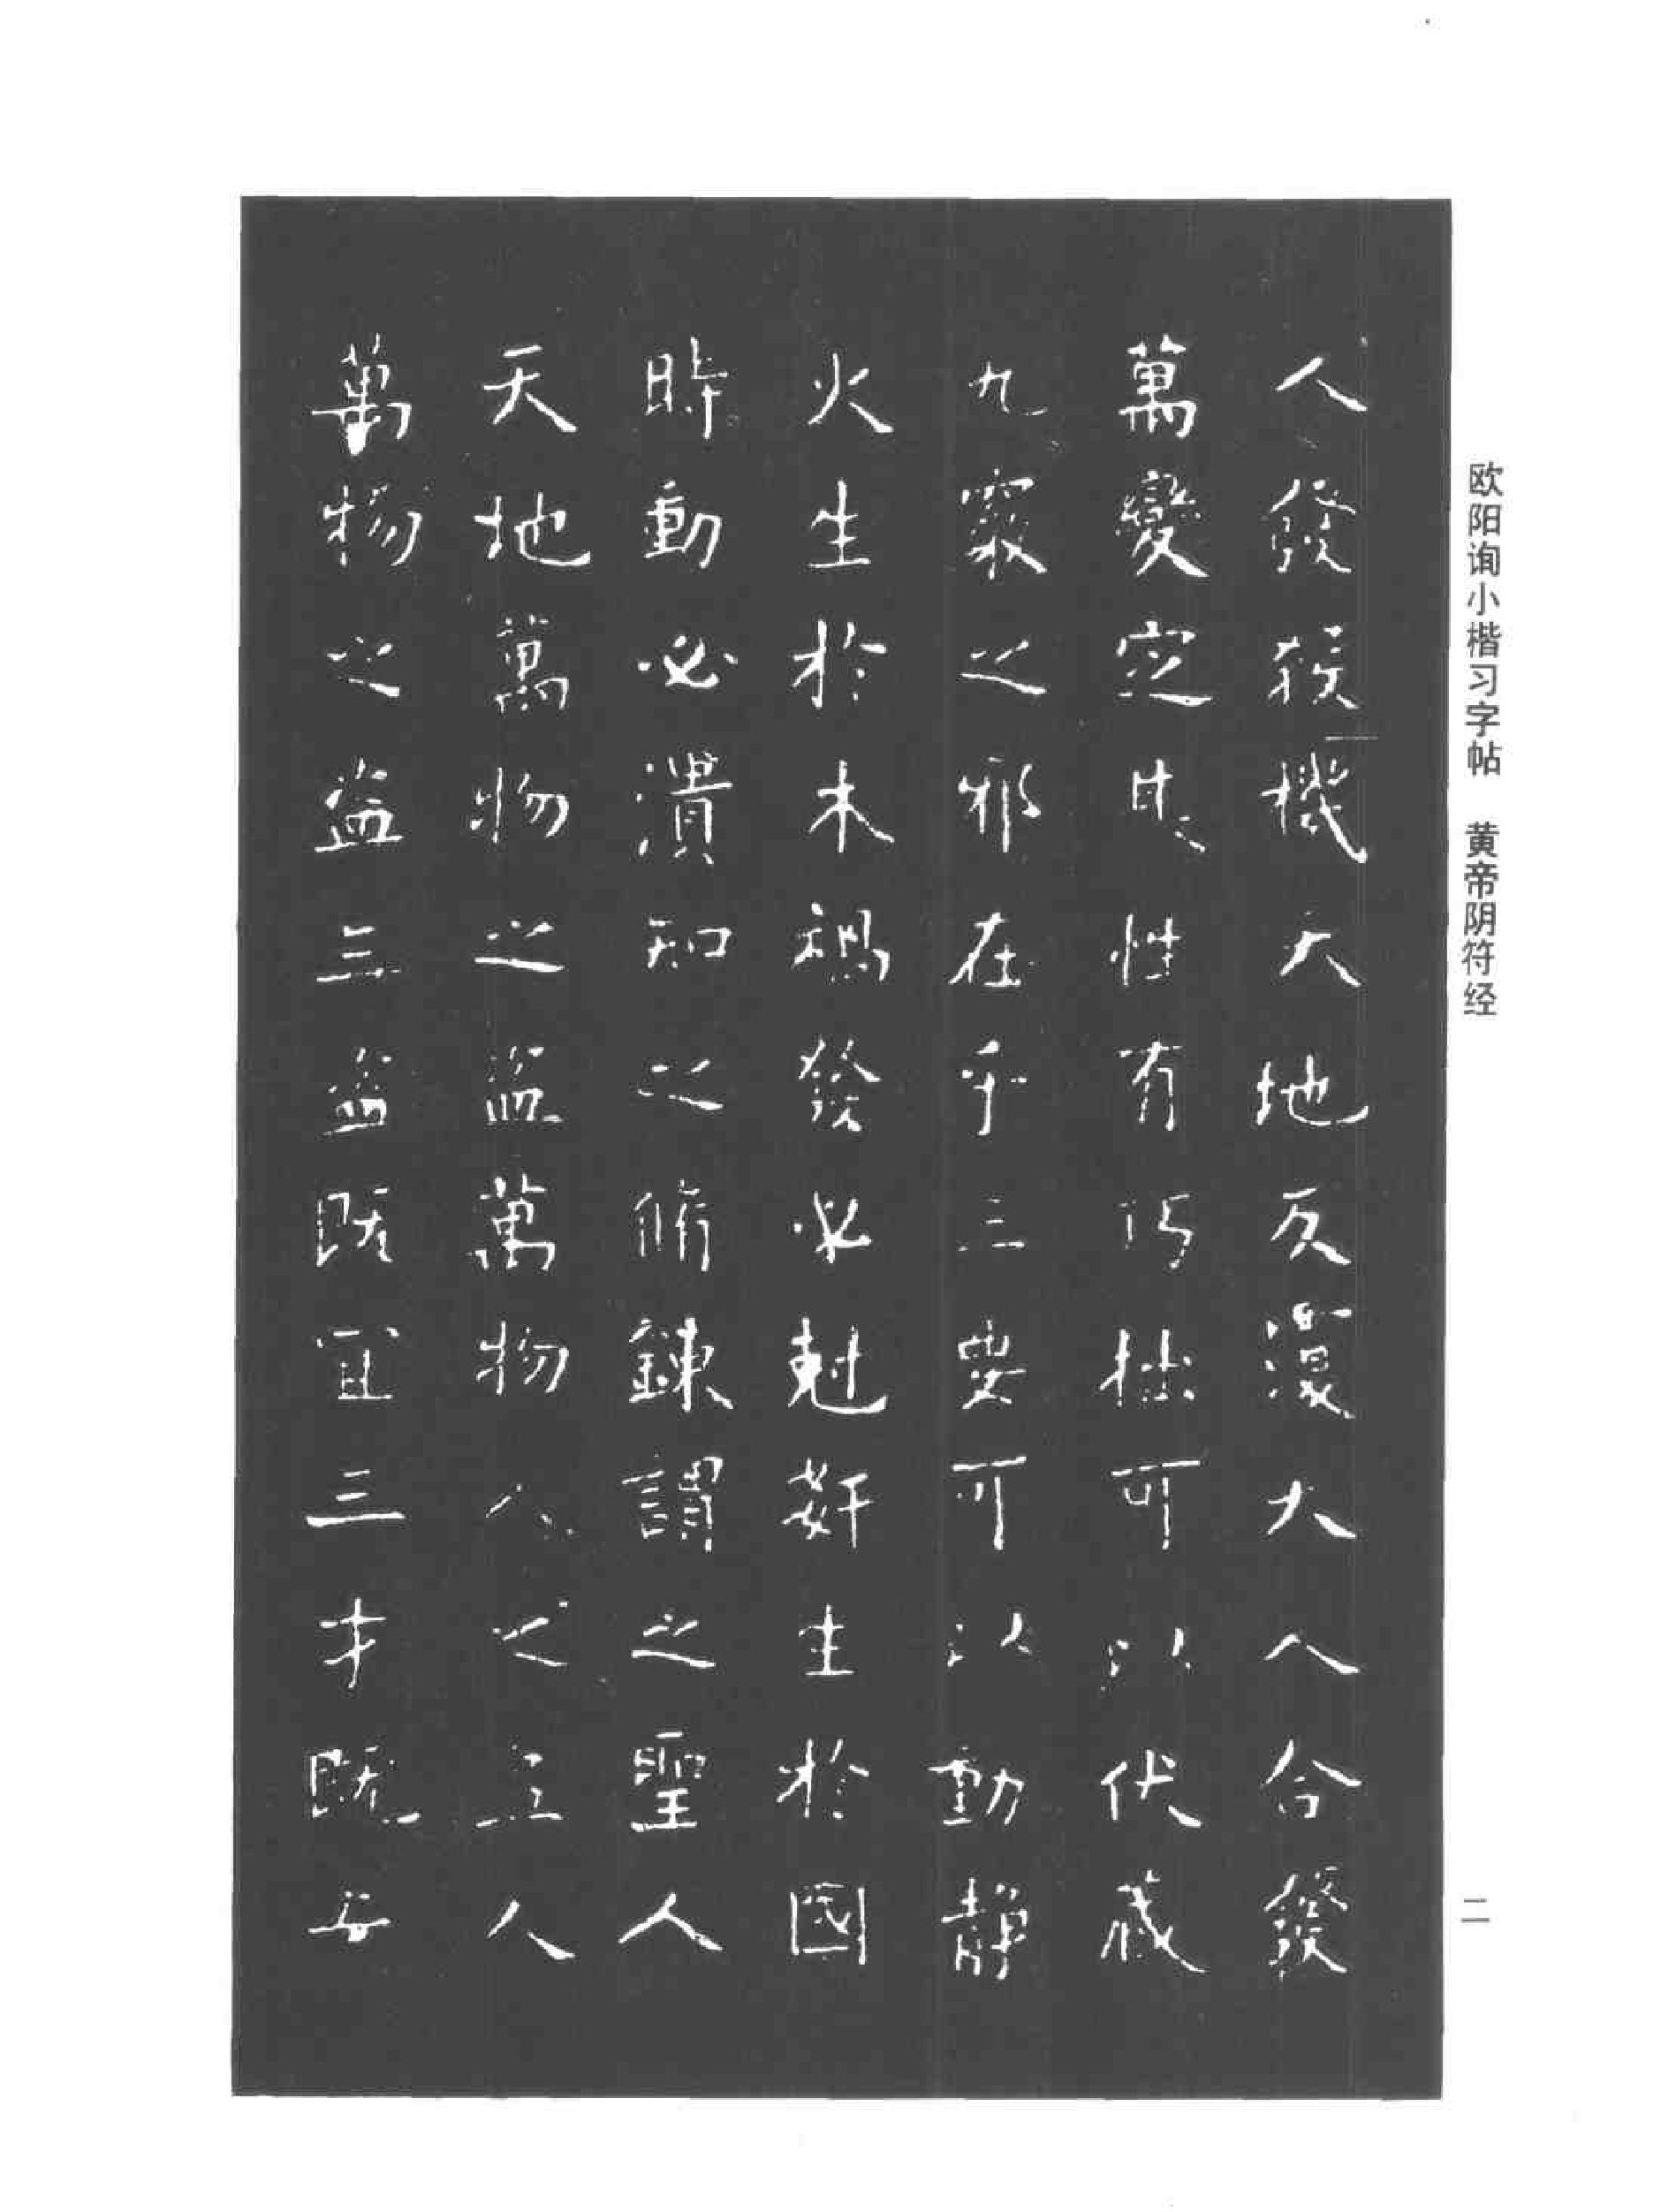 人發殺機天地反覆天人合發
萬變定其性有巧拙可以伏藏
九竅之邪在乎三要可以動靜
火生於木禍發必剋姧生於國
時動必潰知之脩鍊謂之聖人
天地萬物之盜萬物人之盜人
萬物之盜三盜既宜三才既安
欧阳询小楷习字帖 黄帝阴符经
二